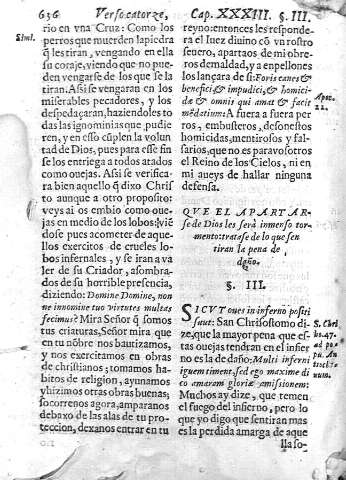 636 Verso catorze, Cap. XXXIII. §. III.
rio en vna Cruz: Como los
Simil. perros que muerden la piedra
q̃ les tiran, vengando en ella
su coraje, viendo que no pue
den vengarse de los que se la
tiran. Assi se vengaran en los
miserables pecadores, y los
despedaçaran, haziendoles to
das las ignominias que pudie
ren, y en esso cũplen la volun
tad de Dios, pues para esse fin
se los entriega a todos atados
como ouejas. Assi se verifica
ra bien aquello q̃ dixo Chris
to aunque a otro proposito:
veys ai os embio como oue
jas en medio de los lobos: viẽ
dose pues acometer de aque
llos exercitos de crueles lobos
infernales, y se iran a va
ler de su Criador, asombra
dos de su horrible presencia,
diziendo: Domine Domine, non
ne in nomine tuo virtutes multas
fecimus? Mira Señor q̃ somos
tus criaturas, Señor mira que
en tu nõbre nos bautizamos,
y nos exercitamos en obras
de christianos; tomamos ha
bitos de religion, ayunamos
y hizimos otras obras buenas;
socorrenos agora, amparanos
debaxo de las alas de tu pro
teccion, dexanos entrar en tu
reyno: entonces les responde
ra el Iuez diuino cõ vn rostro
seuero, apartaos de mi obre
ros de maldad, y a enpellones
los lançara de si: Foris canes &
benefici & impudici, & homici- Apoc.
dæ & omnis qui amat & facit 22.
mẽdatium: A fuera a fuera per
ros, embusteros, desonestos
homicidas, mentirosos y fal-
sarios, que no es para vosotros
el Reino de los Cielos, ni en
mi aueys de hallar ninguna
defensa.
QVE EL APARTAR-
se de Dios les serà inmenso tor-
mento: tratase de lo que sen
tiran la pena de
daño.
§. III.
SICVT oues in inferno positi
sunt: San Chrisostomo di S. Chri
ze, que la mayor pena que es- hs. 47.
tas ouejas tendran en el infier ad po
no es la de daño: Multi inferni pu. An
ignem timent, sed ego maxime di tioche
co amaram gloriæ amissionem: num.
Muchos ay dize, que temen
el fuego del infierno, pero lo
que yo digo que sentiran mas
es la perdida amarga de aque
lla so-